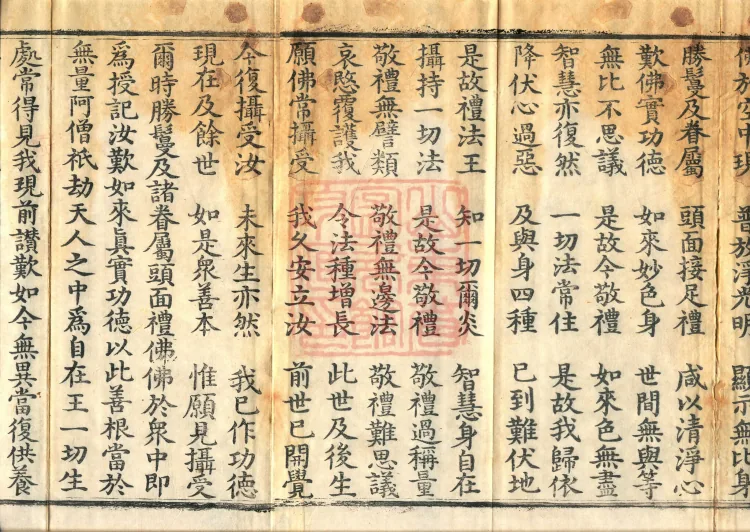 佛於空中現　普放淨光明　顯示無比身
勝鬘及眷屬　頭面接足禮　咸以清淨心
歎佛實功德　如來妙色身　世間無與等
無比不思議　是故今敬禮　如來色無盡
智慧亦復然　一切法常住　是故我歸依
降伏心過惡　及與身四種　已到難伏地
是故禮法王　知一切爾炎　智慧身自在
攝持一切法　是故今敬禮　敬禮過稱量
敬禮無譬類　敬禮無邊法　敬禮難思議
哀愍覆護我　令法種增長　此世及後生
願佛常攝受　我久安立汝　前世已開覺
今復攝受汝　未來生亦然　我已作功德
現在及餘世　如是衆善本　惟願見攝受
爾時勝鬘及諸眷屬頭面禮佛佛於衆中即
爲授記汝歎如來眞實功德以此善根當於
無量阿僧祇劫天人之中爲自在王一切生
處常得見我現前讃歎如今無異當復供養